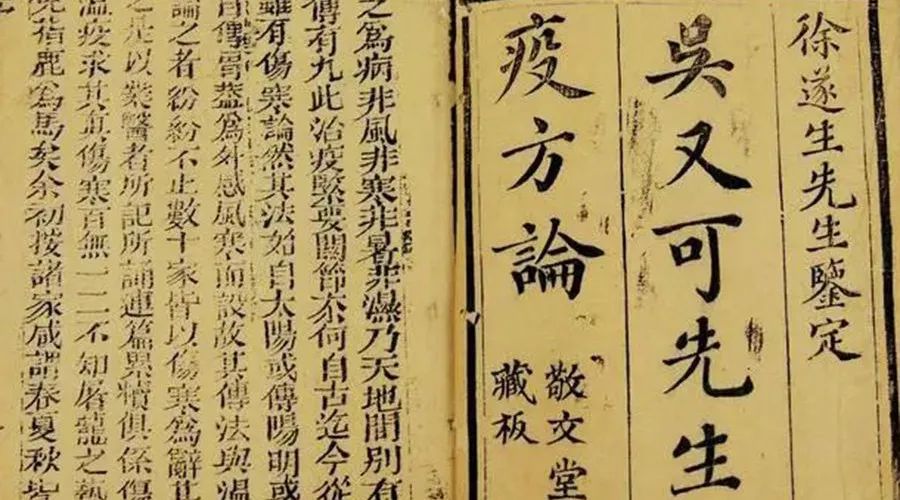 徐遂生先生鑒定
吳又可先生
疫方論
敬文堂
藏板
之為病非風非寒非暑非濕乃天地間別有
傳有九此治疫緊要關節奈何自古迄今從
雖有傷寒論然其法始自太陽或傳陽明或
自傳胃蓋為外感風寒而設故其傳法與溫
論之者紛紛不止數十家皆以傷寒為辭其
之是以業醫者所記所誦連篇累牘俱係傷
溫疫求其真傷寒百無一二不知屠龍之藝
免指鹿為馬矣余初按諸家咸謂春夏秋皆